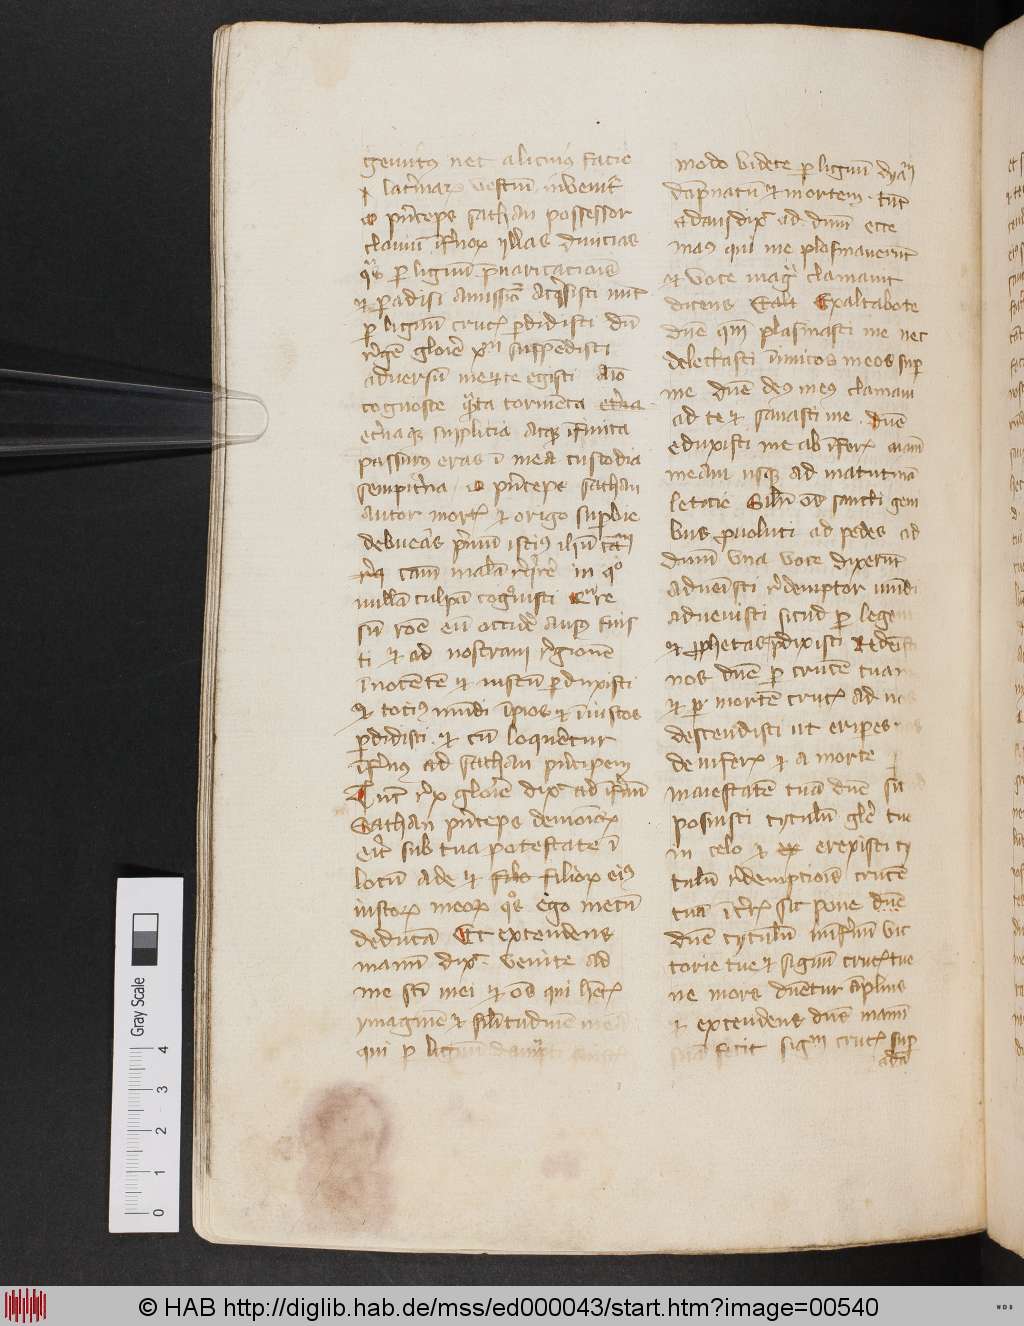 gemitus nec alicuius facie
lacrimarum vestium invenitur
O princeps sathan possessor
clavium infernorum illas divicias
quas per lignum prevaricacionis
et paradisi amissionem acquisisti nunc
per lignum crucis perdidisti dum
regem glorie xpm suspendisti
adversum me et te egisti Amodo
cognosce quanta tormenta eterna
eterna et supplicia atque infinita
passurus eras in mea custodia
sempiterna O princeps sathan
autor mortis et origo superbie
debueras primum istius ihesum
causam malam requirere in quo
nullam culpam cognovisti Quare
sine racione eum occidere ausus fuis
ti et ad nostram regionem
inocentem et iustum perduxisti
et tocius mundi impios et iniustos
perdidisti et cum loqueretur
infernus ad sathan principem
Tunc rex glorie dixit ad infernum
Sathan princeps demoniorum
erit sub tua potestate in
locum ade et filio filiorum eius
iustorum meorum quos ego mecum
deducam Et extendens
manum dixit venite ad
me sancti mei et omnes qui habetis
ymaginem et similitudinem meam
qui per lignum dampnati
modo videte per lignum dyabolum
dampnatum et mortem tunc
dixit ad dominum ecce
manus qui me plasmaverunt
et voce magna clamavit
dicens Exalt Exaltabo te
domine quoniam plasmasti me nec
delectasti inimicos meos super
me domine deus meus clamavi
ad te et sanasti me domine
eduxisti me ab inferis animam
meam usque ad matutinam
leticie Similiter omnes sancti geni
bus provoluti ad pedes ad
dominum una voce dixerunt
advenisti redemptor mundi
advenisti sicud per legem
et prophetas predixisti Redemisti
nos domine per crucem tuam
et per mortem crucis ad nos
descendisti ut eriperes nos
de inferis et a morte
maiestatem tuam domine sicut
posuisti tytulum glorie tue
in celo et ex erexisti ty
tulum redempcionis crucem
tuam in terris sic pone domine
domine tytulum in infernum vic
torie tue et signum crucis tue
ne mors dominetur amplius
et extendens dominus manum
suam fecit signum crucis super
adam
Gray Scale
0 1 2 3 4
© HAB http://diglib.hab.de/mss/ed000043/start.htm?image=00540